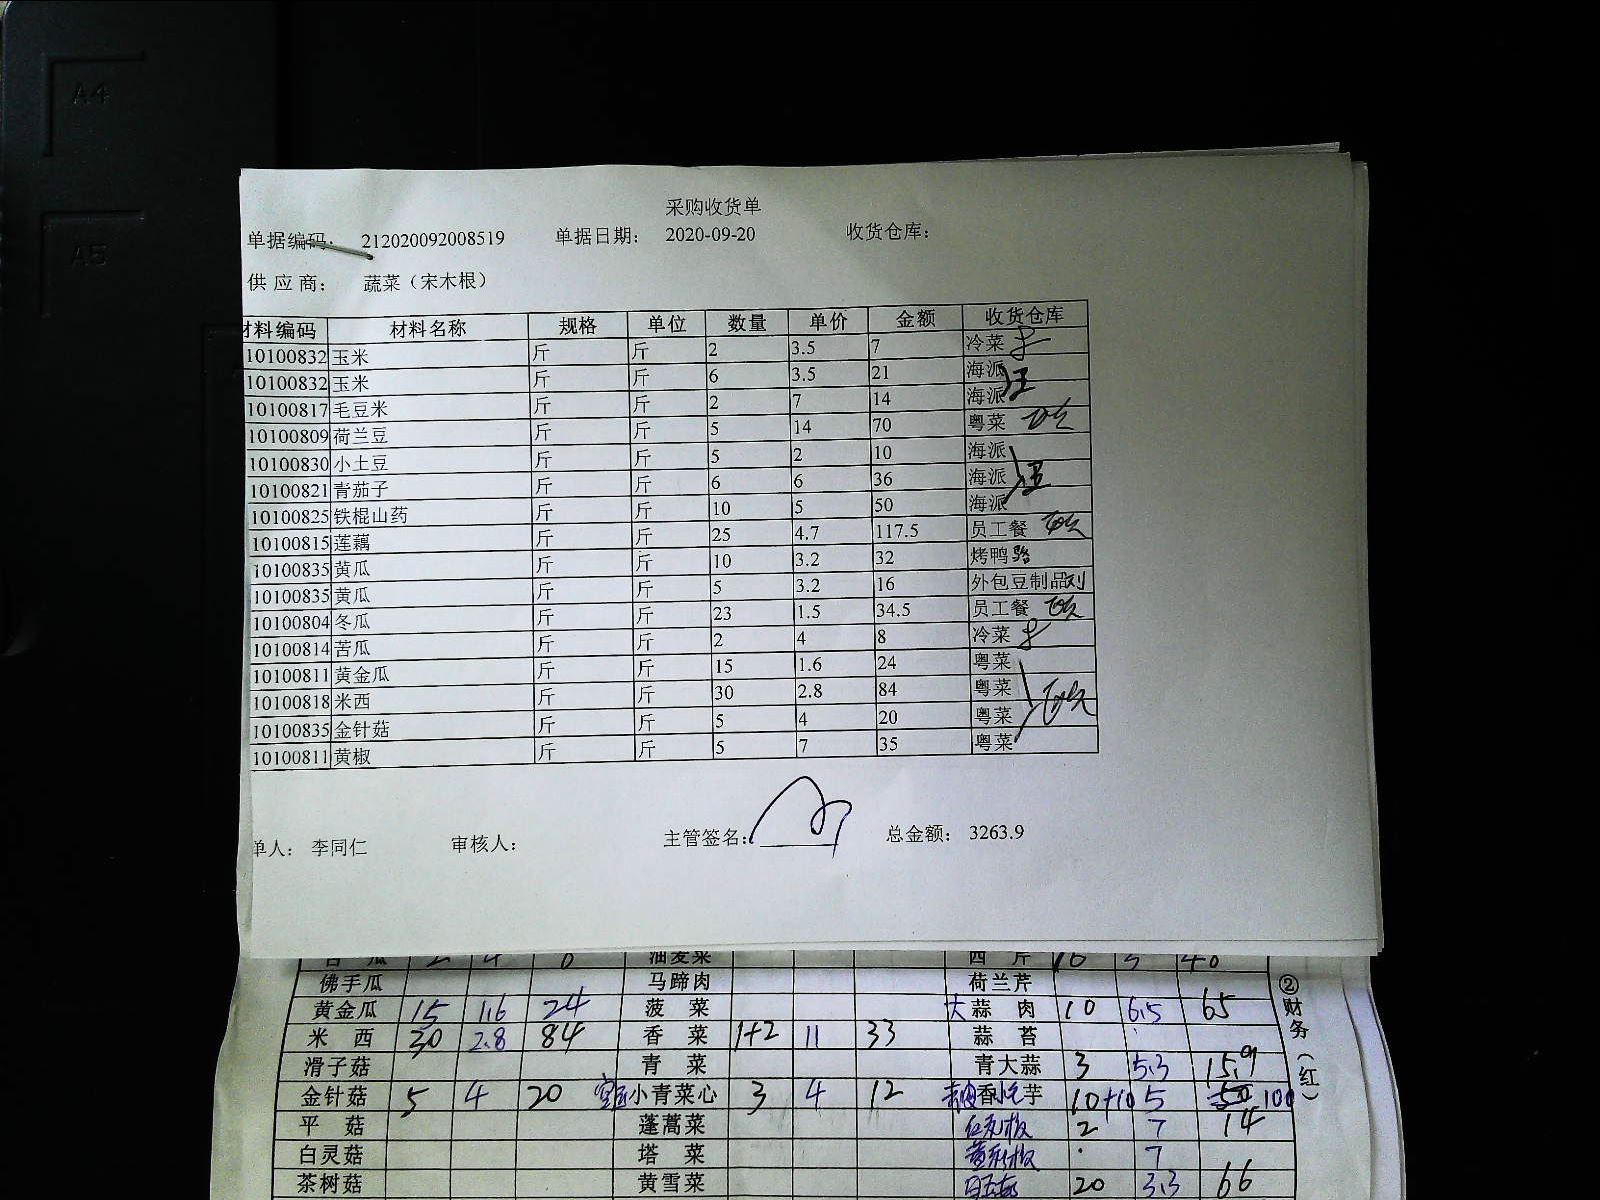 A4
A5
采购收货单
单据编码： 212020092008519 单据日期： 2020-09-20 收货仓库：
供应商： 蔬菜（宋木根）
材料编码 材料名称 规格 单位 数量 单价 金额 收货仓库
10100832 玉米 斤 斤 2 3.5 7 冷菜
10100832 玉米 斤 斤 6 3.5 21 海派
10100817 毛豆米 斤 斤 2 7 14 海派
汪
10100809 荷兰豆 斤 斤 5 14 70 粤菜
10100830 小土豆 斤 斤 5 2 10 海派
10100821 青茄子 斤 斤 6 6 36 海派
汪
10100825 铁棍山药 斤 斤 10 5 50 海派
10100815 莲藕 斤 斤 25 4.7 117.5 员工餐
10100835 黄瓜 斤 斤 10 3.2 32 烤鸭
10100835 黄瓜 斤 斤 5 3.2 16 外包豆制品 刘
10100804 冬瓜 斤 斤 23 1.5 34.5 员工餐
10100814 苦瓜 斤 斤 2 4 8 冷菜
10100811 黄金瓜 斤 斤 15 1.6 24 粤菜
10100818 米西 斤 斤 30 2.8 84 粤菜
10100835 金针菇 斤 斤 5 4 20 粤菜
10100811 黄椒 斤 斤 5 7 35 粤菜
单人： 李同仁 审核人： 主管签名： 总金额： 3263.9
苦瓜 2 4 8 油麦菜 西芹 16 3 48
佛手瓜 马蹄肉 荷兰芹
黄金瓜 15 1.6 24 菠菜 大蒜肉 10 6.5 65
米西 30 2.8 84 香菜 1+2 11 33 蒜苔
滑子菇 青菜 青大蒜 3 5.3 15.9
金针菇 5 4 20 小青菜心 3 4 12 香芋 10+10 5 100
平菇 蓬蒿菜 2 7 14
白灵菇 塔菜 7
茶树菇 黄雪菜 20 3.3 66
②财务（红）